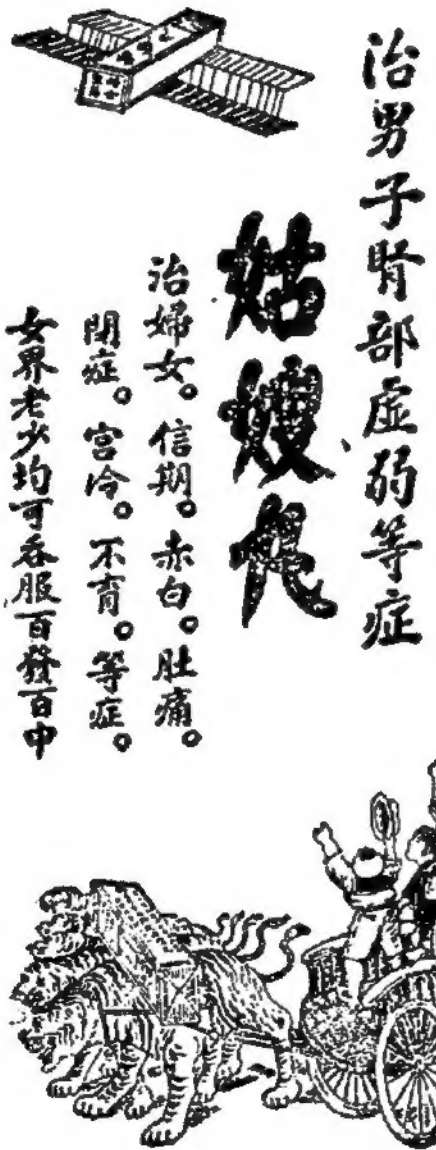 治男子腎部虛弱等症
姑嫂丸
治婦女。信期。赤白。肚痛。
閉症。宮冷。不育。等症。
女界老少均可吞服百發百中